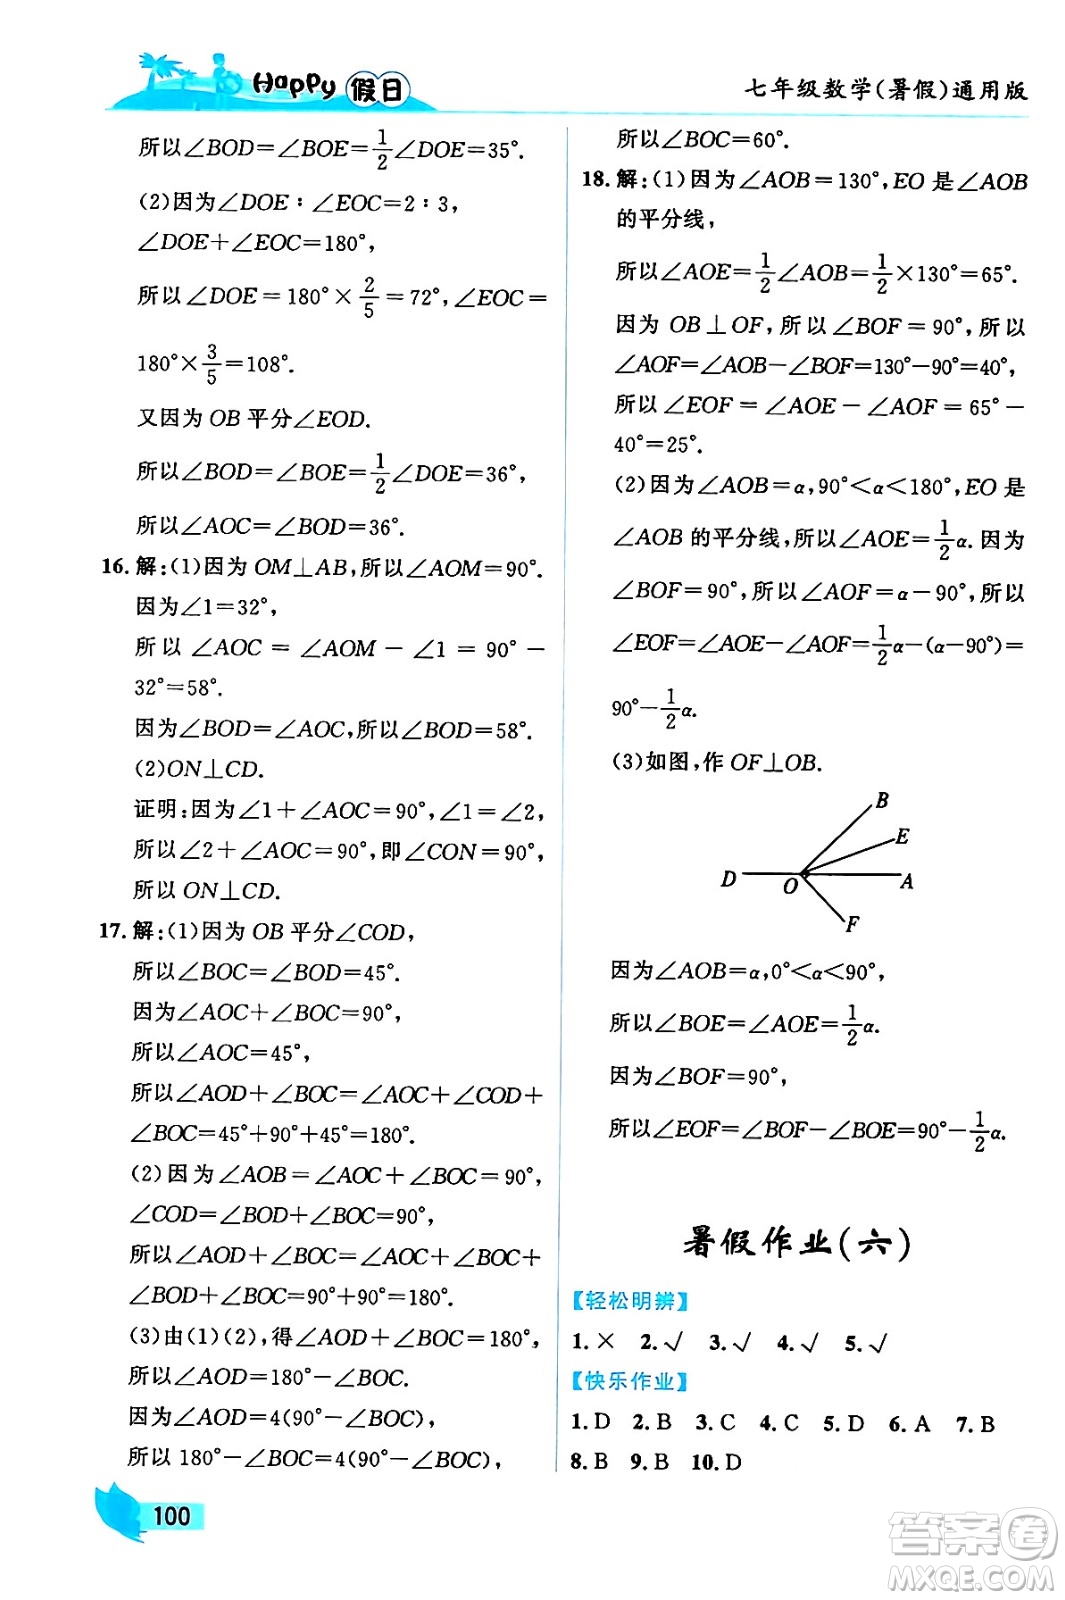 Happy 假日
七年级数学(暑假)通用版
所以∠BOD=∠BOE=1/2∠DOE=35°.
(2)因为∠DOE∶∠EOC=2∶3,
∠DOE+∠EOC=180°,
所以∠DOE=180°×2/5=72°,∠EOC=
180°×3/5=108°.
又因为OB平分∠EOD.
所以∠BOD=∠BOE=1/2∠DOE=36°,
所以∠AOC=∠BOD=36°.
16.解:(1)因为OM⊥AB,所以∠AOM=90°.
因为∠1=32°,
所以∠AOC=∠AOM-∠1=90°-
32°=58°.
因为∠BOD=∠AOC,所以∠BOD=58°.
(2)ON⊥CD.
证明:因为∠1+∠AOC=90°,∠1=∠2,
所以∠2+∠AOC=90°,即∠CON=90°,
所以ON⊥CD.
17.解:(1)因为OB平分∠COD,
所以∠BOC=∠BOD=45°.
因为∠AOC+∠BOC=90°,
所以∠AOC=45°,
所以∠AOD+∠BOC=∠AOC+∠COD+
∠BOC=45°+90°+45°=180°.
(2)因为∠AOB=∠AOC+∠BOC=90°,
∠COD=∠BOD+∠BOC=90°,
所以∠AOD+∠BOC=∠AOC+∠BOC+
∠BOD+∠BOC=90°+90°=180°.
(3)由(1)(2),得∠AOD+∠BOC=180°,
所以∠AOD=180°-∠BOC.
因为∠AOD=4(90°-∠BOC),
所以180°-∠BOC=4(90°-∠BOC),
100
所以∠BOC=60°.
18.解:(1)因为∠AOB=130°,EO是∠AOB
的平分线,
所以∠AOE=1/2∠AOB=1/2×130°=65°.
因为OB⊥OF,所以∠BOF=90°,所以
∠AOF=∠AOB-∠BOF=130°-90°=40°,
所以∠EOF=∠AOE-∠AOF=65°-
40°=25°.
(2)因为∠AOB=α,90°<α<180°,EO是
∠AOB的平分线,所以∠AOE=1/2α.因为
∠BOF=90°,所以∠AOF=α-90°,所以
∠EOF=∠AOE-∠AOF=1/2α-(α-90°)=
90°-1/2α.
(3)如图,作OF⊥OB.
B
E
D
O
A
F
因为∠AOB=α,0°<α<90°,
所以∠BOE=∠AOE=1/2α.
因为∠BOF=90°,
所以∠EOF=∠BOF-∠BOE=90°-1/2α.
暑假作业(六)
【轻松明辨】
1.× 2.√ 3.√ 4.√ 5.√
【快乐作业】
1.D 2.B 3.C 4.C 5.D 6.A 7.B
8.B 9.B 10.D
答案卷
MXQE.COM